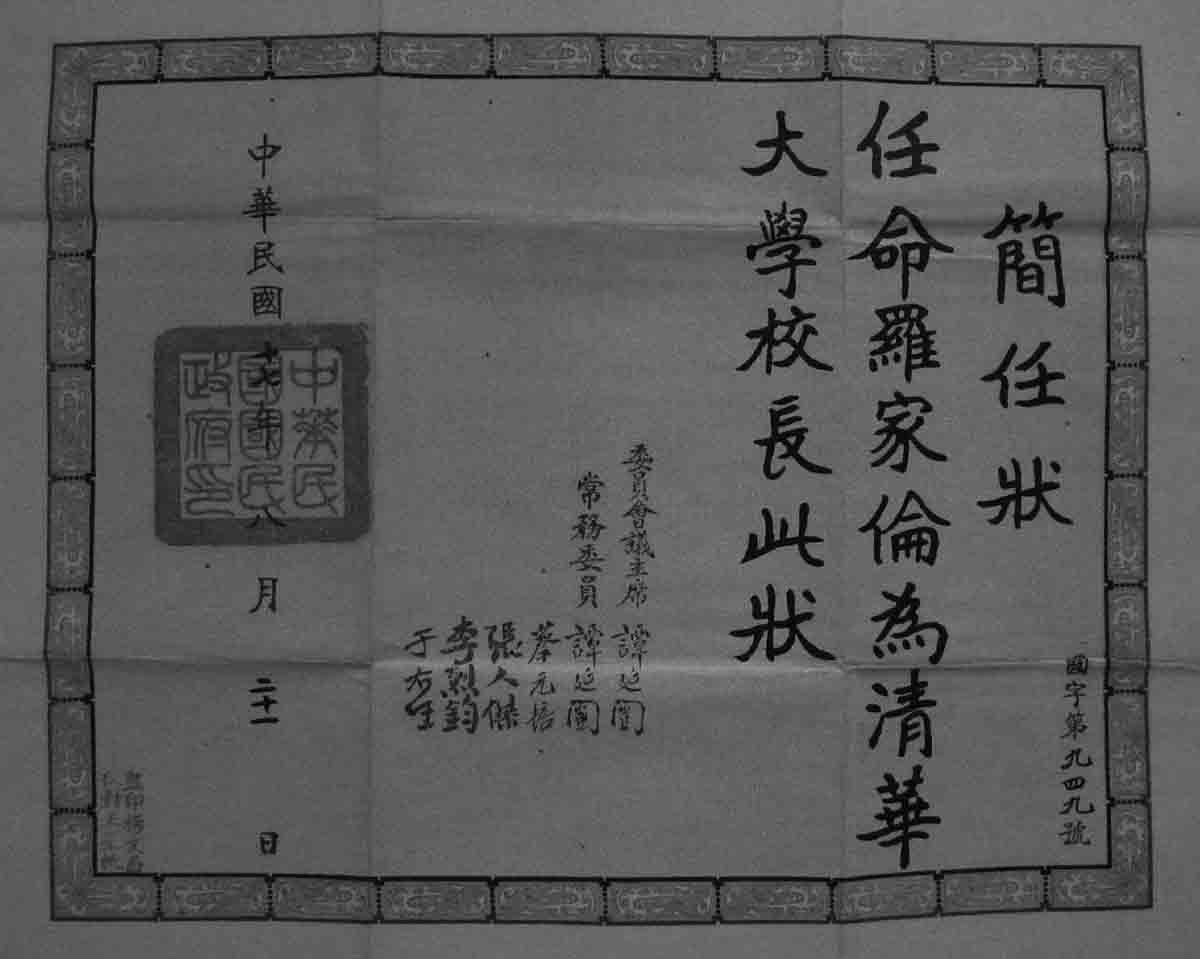 簡任狀
國字第九四九號
任命羅家倫為清華
大學校長此狀
委員會議主席 譚延闓
常務委員 譚延闓
蔡元培
張人傑
李烈鈞
于右任
中華民國十七年八月二十一日
中華民
國國民
政府印